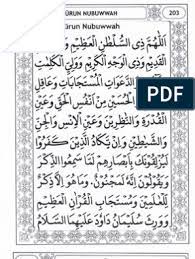 ÛRUN NUBUWWAH
203
اَللّٰهُمَّ ذِى السُّلْطٰنِ الْعَظِيْمِ
الْقَدِيْمِ وَذِى الْوَجْهِ الْكَرِيْمِ
الدَّعَوَاتِ الْمُسْتَجَابَاتِ عَاقِلِ
الْحُسَيْنِ مِنْ اَنْفُسِ الْحَقِّ وَعَيْنِ
الْقُدْرَةِ وَالنَّاظِرِيْنَ وَعَيْنِ الْاِنْسِ وَالْجِنِّ
وَالشَّيٰطِيْنِ وَاِنْ يَّكَادُ الَّذِيْنَ كَفَرُوْا
لَيُزْلِقُوْنَكَ بِاَبْصَارِهِمْ لَمَّا سَمِعُوا الذِّكْرَ
وَيَقُوْلُوْنَ اِنَّهٗ لَمَجْنُوْنٌ. وَمَا هُوَ اِلَّا ذِكْرٌ
لِّلْعٰلَمِيْنَ وَمُسْتَجَابِ الْقُرْاٰنِ الْعَظِيْمِ
وَوَرِثَ سُلَيْمَانُ دَاوٗدَ عَلَيْهِمَا السَّلَامُ
PDF